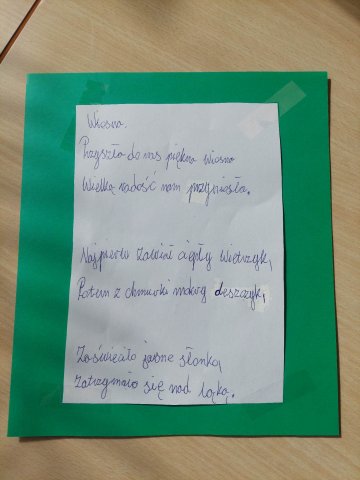 Wiosna.
Przyszła do nas piękna wiosna
Wielką radość nam przyniosła.
Najpierw zawiał ciepły wietrzyk,
Potem z chmurki mokry deszczyk,
Zaświeciło jasne słonko,
Zatrzymało się nad łąką.